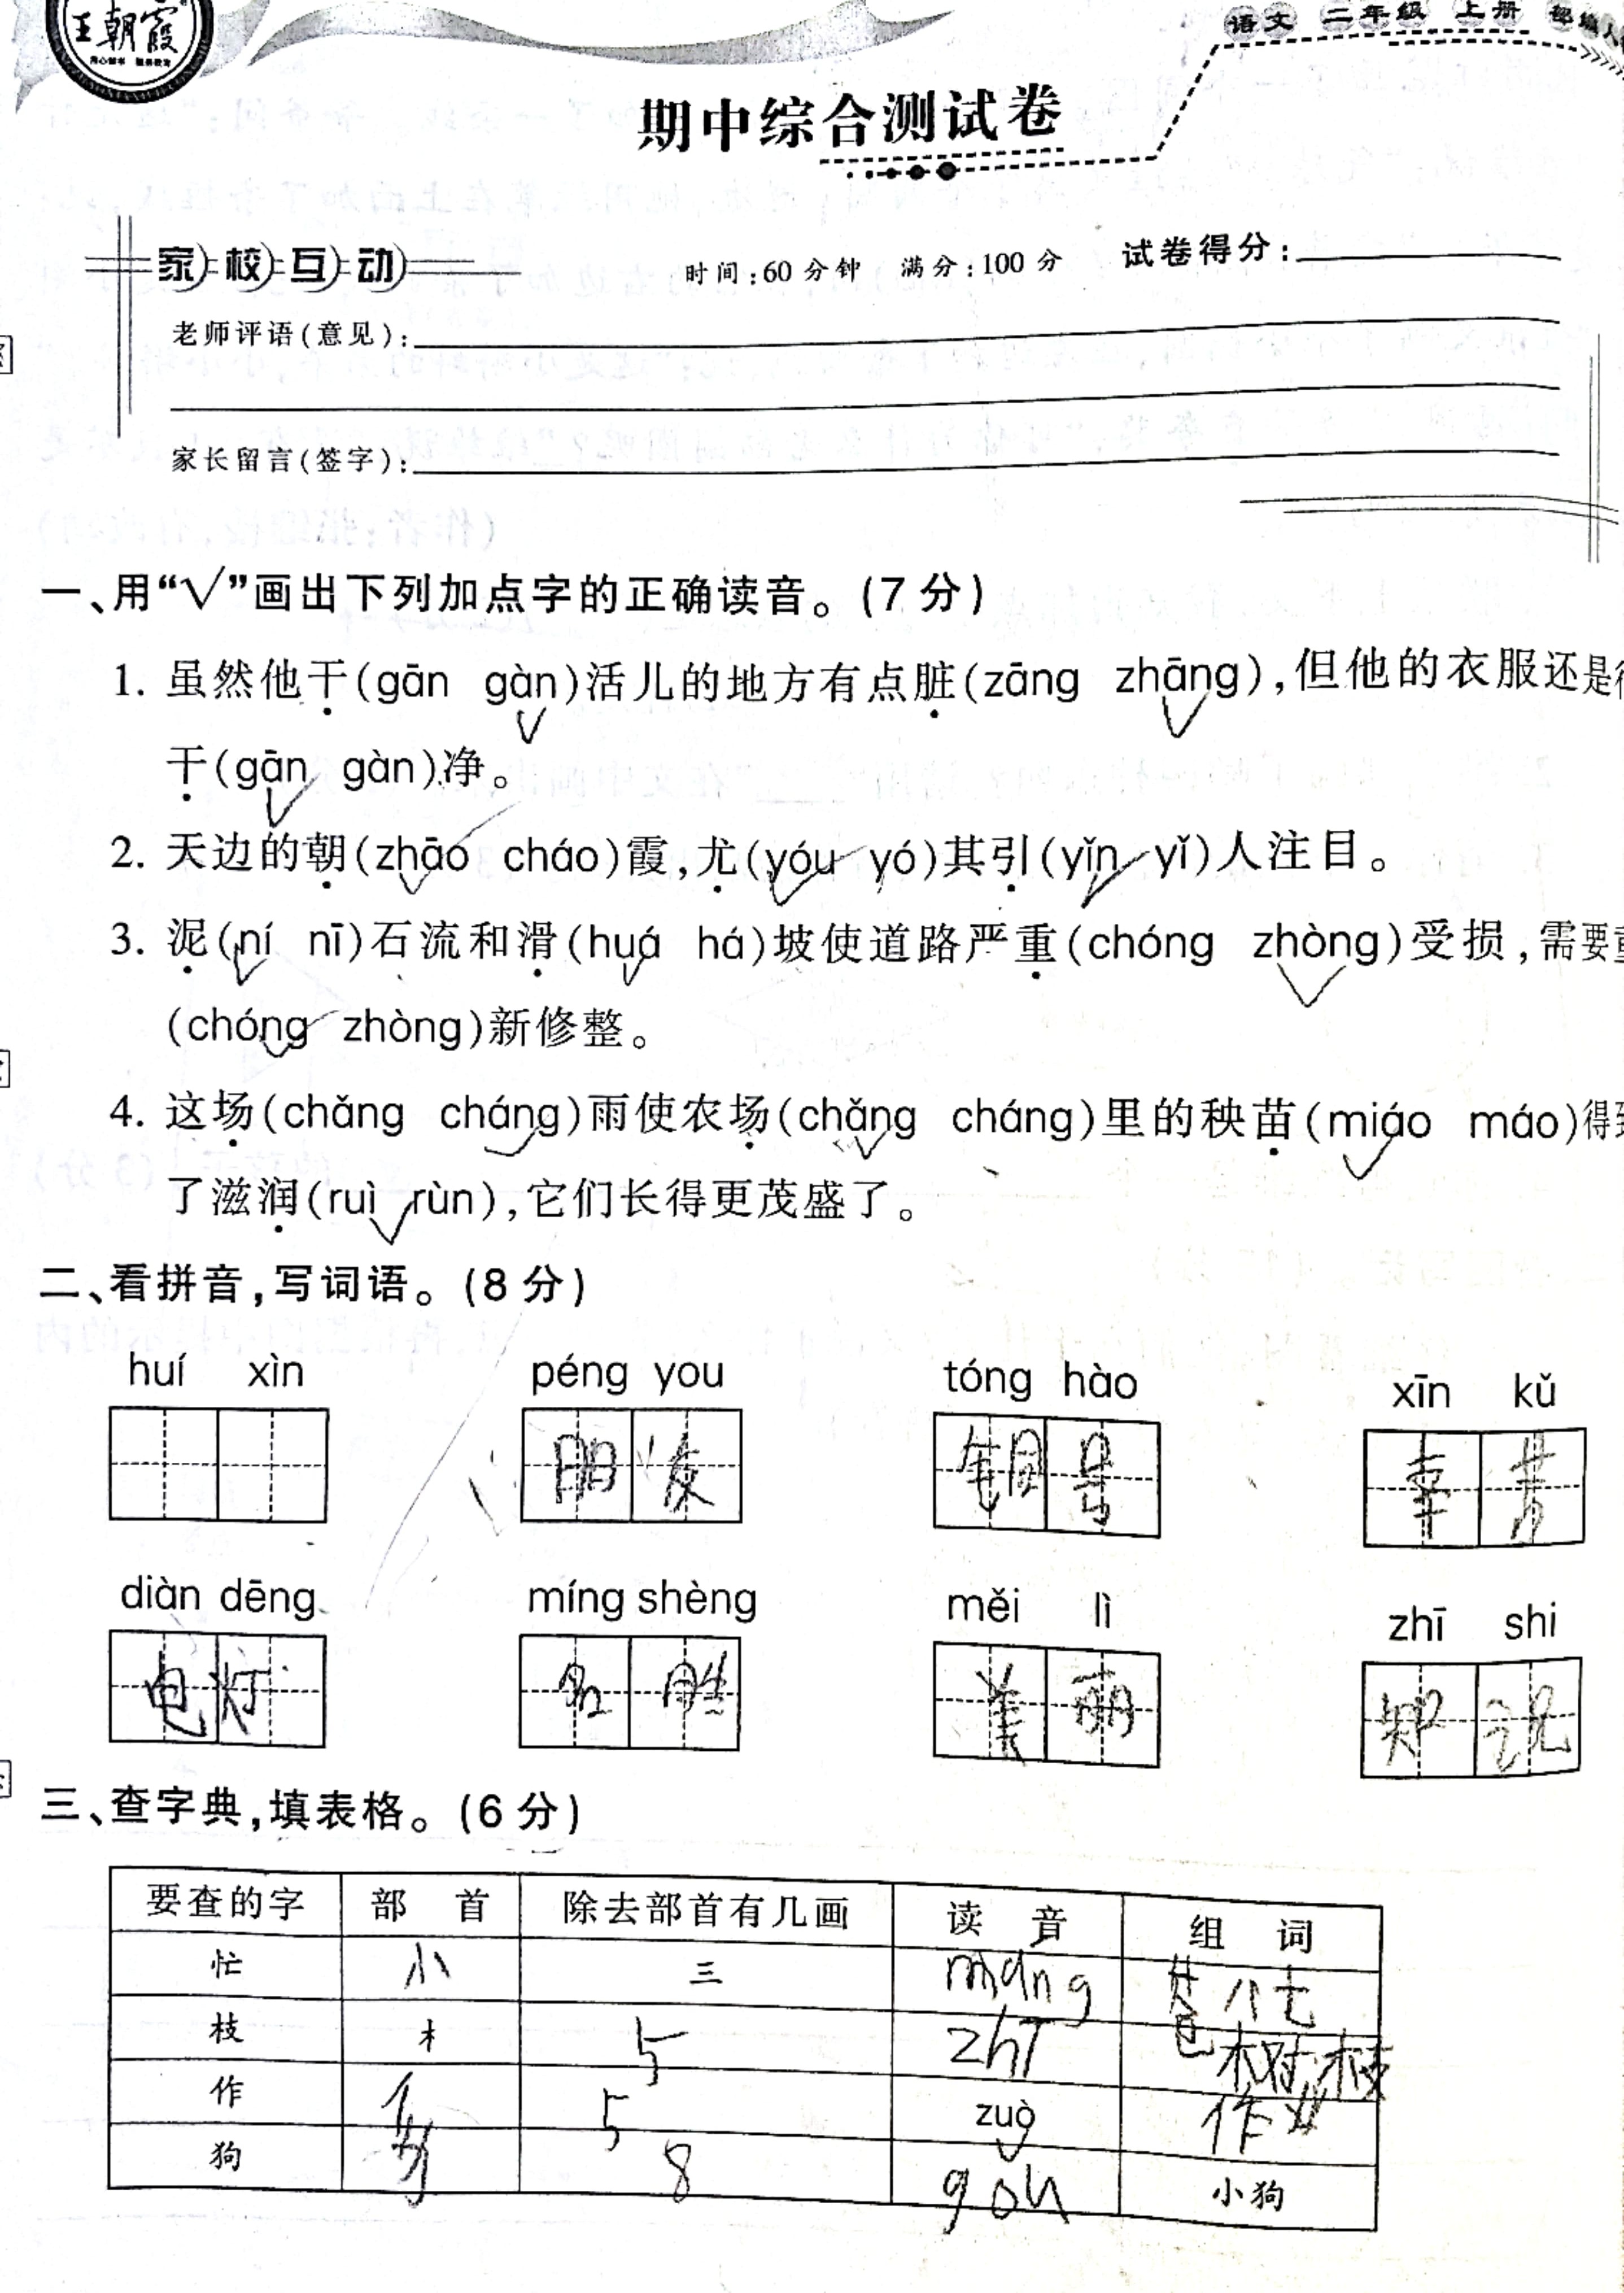 王朝霞
语文 二年级 上册 部编人
期中综合测试卷
家校互动 时间:60分钟 满分:100分 试卷得分:
老师评语(意见):
家长留言(签字):
一、用“√”画出下列加点字的正确读音。(7分)
1. 虽然他干(gān gàn)活儿的地方有点脏(zāng zhāng),但他的衣服还是很
干(gān gàn)净。
2. 天边的朝(zhāo cháo)霞,尤(yóu yó)其引(yǐn yǐ)人注目。
3. 泥(ní nī)石流和滑(huá há)坡使道路严重(chóng zhòng)受损,需要重
(chóng zhòng)新修整。
4. 这场(chǎng cháng)雨使农场(chǎng cháng)里的秧苗(miáo máo)得到
了滋润(ruì rùn),它们长得更茂盛了。
二、看拼音,写词语。(8分)
huí xìn péng you tóng hào xīn kǔ
朋友 铜号 辛苦
diàn dēng míng shèng měi lì zhī shi
电灯 名胜 美丽 知识
三、查字典,填表格。(6分)
要查的字 部首 除去部首有几画 读音 组词
忙 忄 三 máng
枝 木 5 zhī 树枝
作 亻 5 zuò 作业
狗 犭 8 gou 小狗